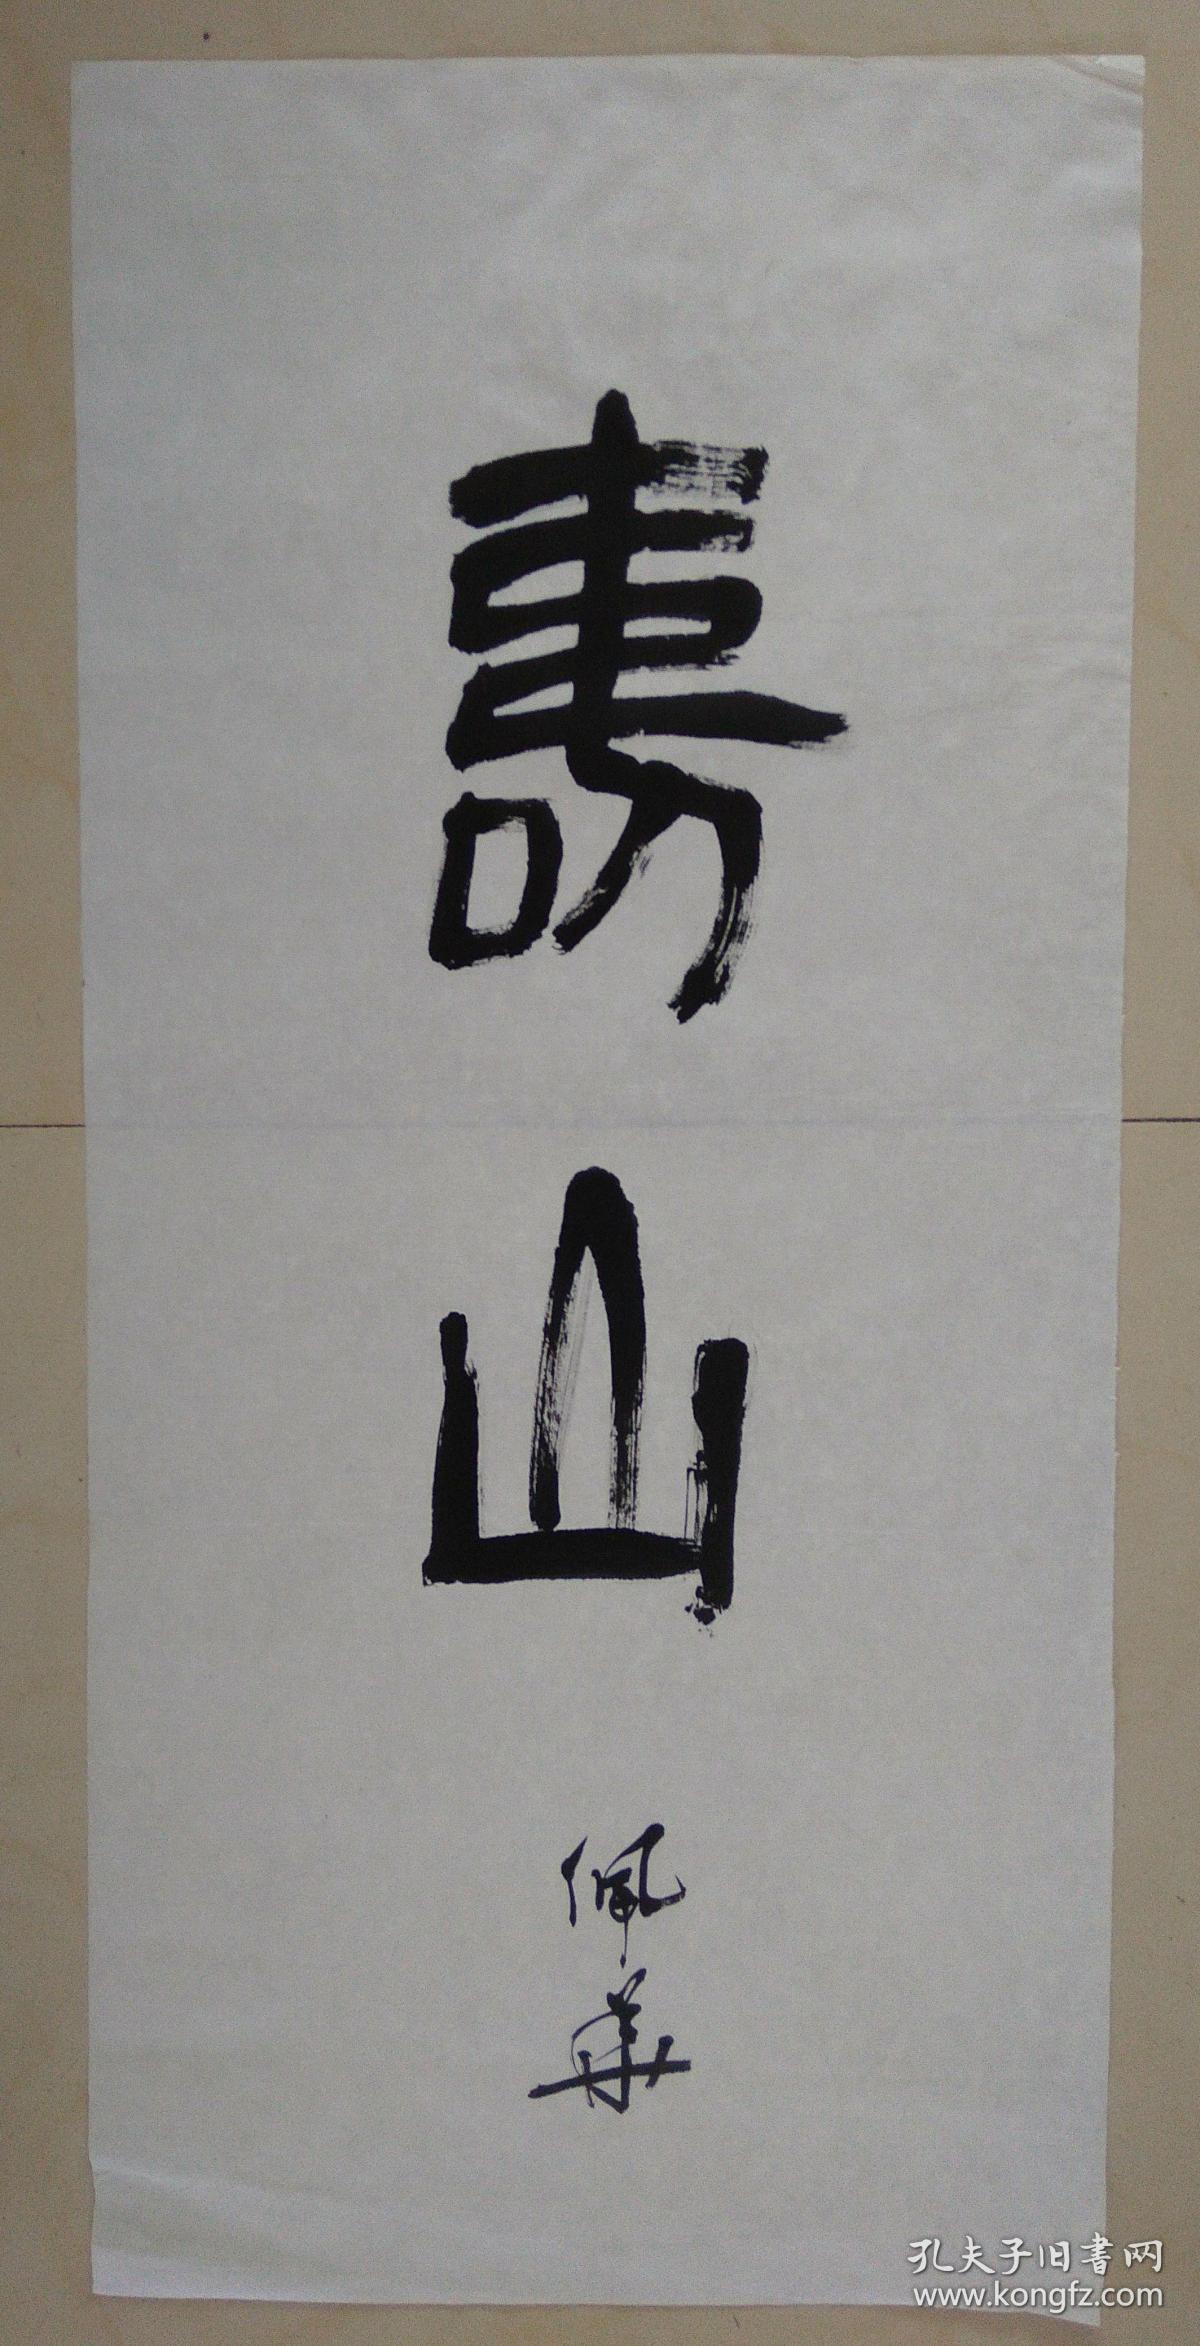 壽山
佩華
孔夫子旧書网
www.kongfz.com